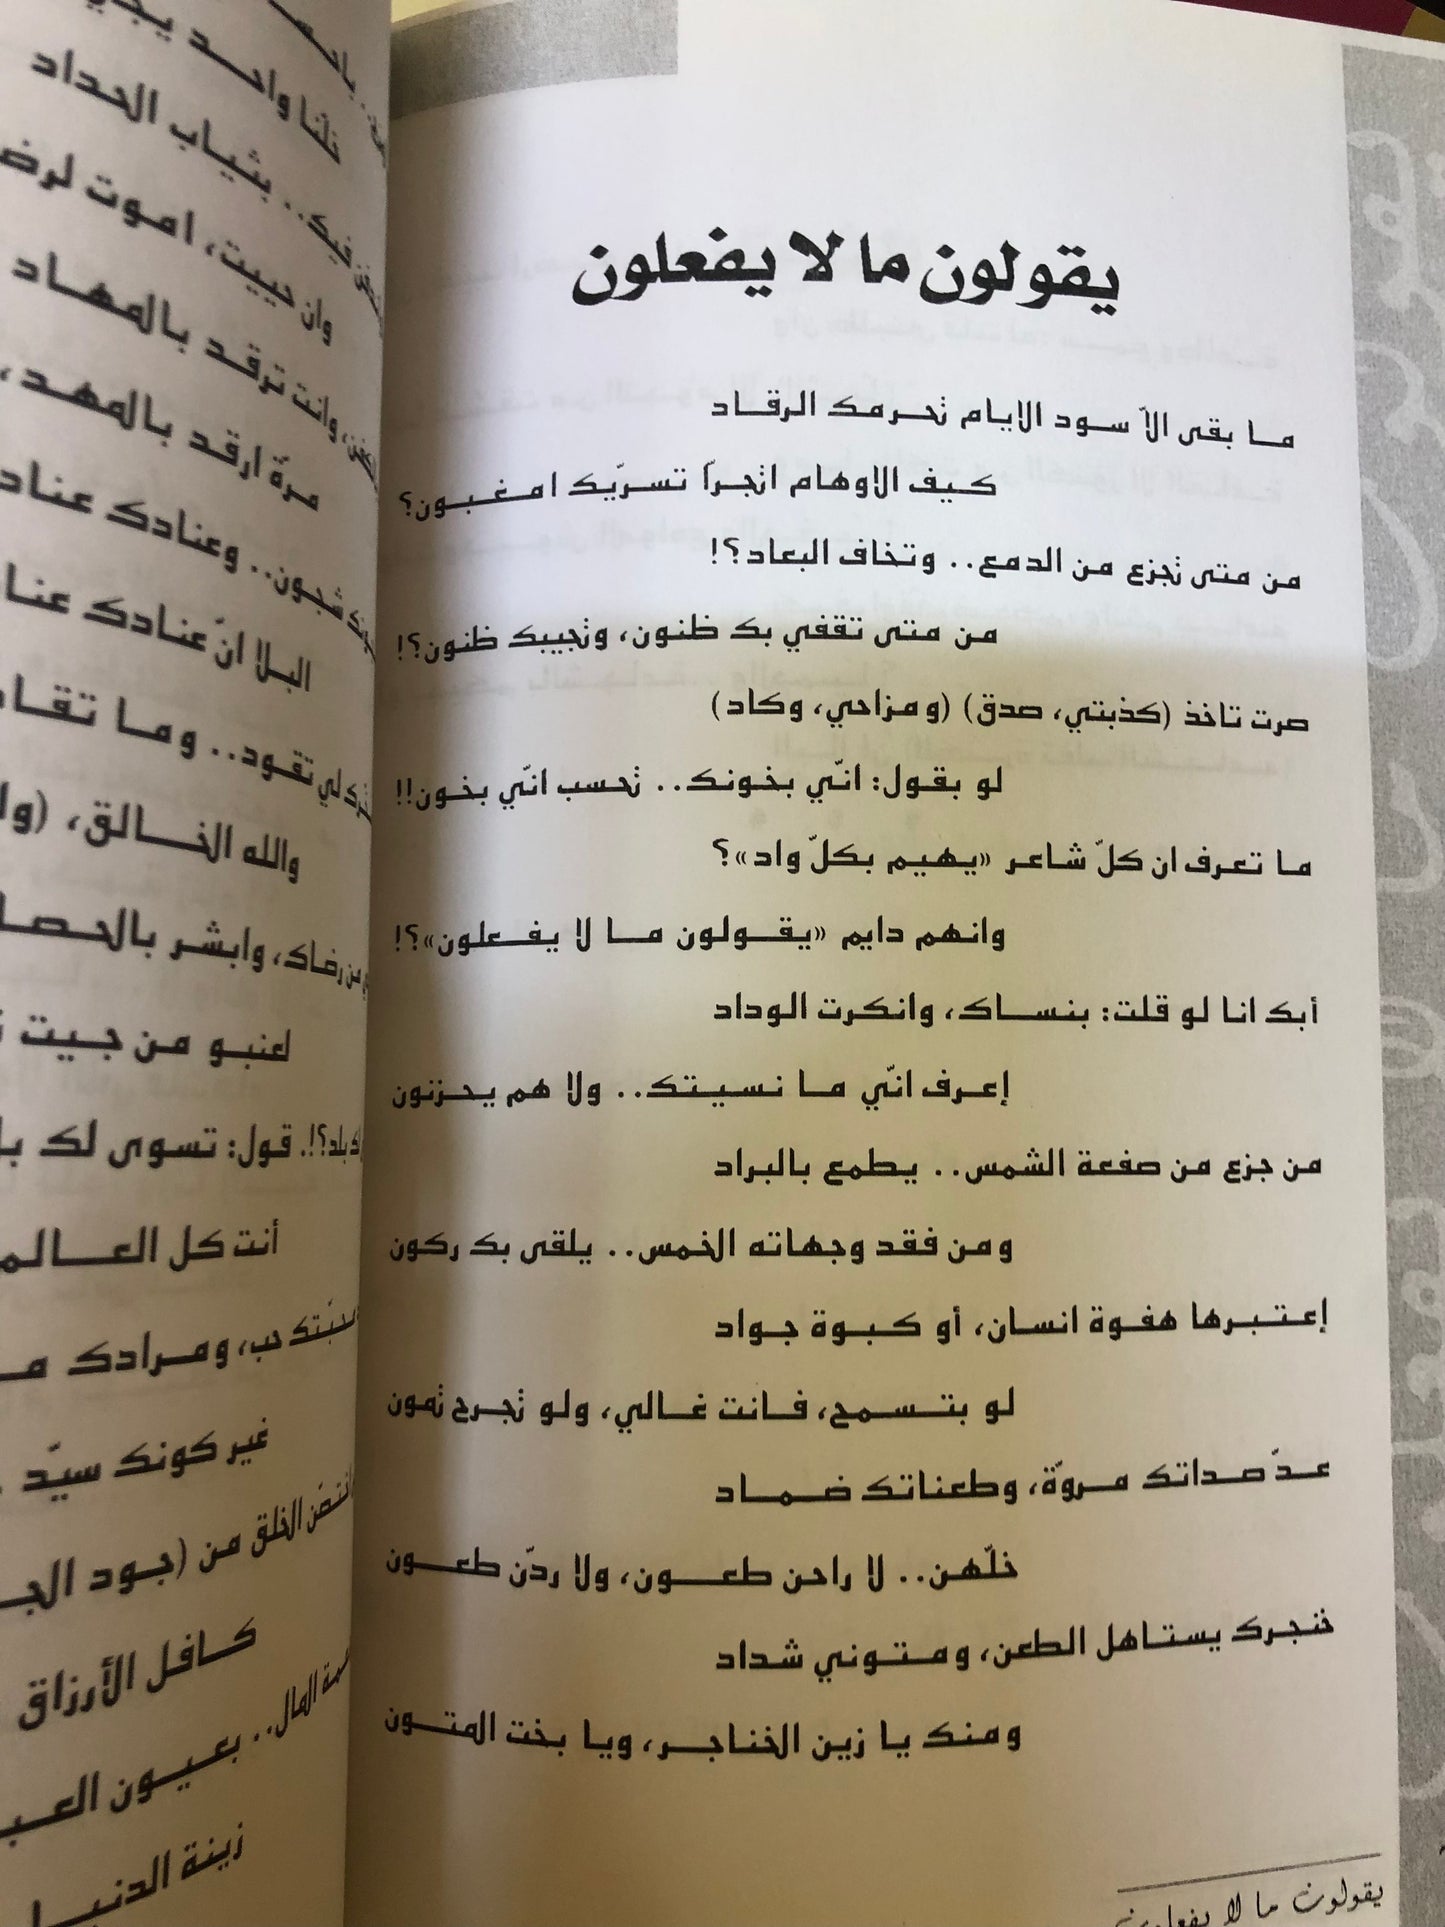 يقولون ما لا يفعلون
ما بقى الاّ سود الايام تحرمك الرقاد
كيف الاوهام اتجرّا تسريّك امغبون؟
من متى تجزع من الدمع.. وتخاف البعاد؟!
من متى تقفي بك ظنون، وتجيبك ظنون؟!
صرت تاخذ (كذبتي، صدق) (ومزاحي، وكاد)
لو بقول: انّي بخونك.. تحسب انّي بخون!!
ما تعرف ان كلّ شاعر «يهيم بكلّ واد»؟
وانهم دايم «يقولون ما لا يفعلون»؟!
أبك انا لو قلت: بنساك، وانكرت الوداد
إعرف انّي ما نسيتك.. ولا هم يحزنون
من جزع من صفعة الشمس.. يطمع بالبراد
ومن فقد وجهاته الخمس.. يلقى بك ركون
إعتبرها هفوة انسان، أو كبوة جواد
لو بتسمح، فانت غالي، ولو تجرح تمون
عدّ صداتك مروّة، وطعناتك ضماد
خلّهن.. لا راحن طعون، ولا ردّن طعون
خنجرك يستاهل الطعن، ومتوني شداد
ومنك يا زين الخناجر، ويا بخت المتون
يقولون ما لا يفعلون
خلنا واحد
فيك.. بثياب الحداد
وان حييت، اموت
وانت ترقد بالمهاد
مرّة ارقد بالمهد،
شجون.. وعنادك عناد
البلا انّ عنادك
لي تقود.. وما
والله الخالق،
من رضاك، وابشر
لعنبو من جيت
بلد؟!. قول: تسوى لك
أنت كل
حب، ومرادك
غير كونك سيّد
الخلق من (جود
كافل الأرزاق
المال.. بعيون
زينة الدنيا